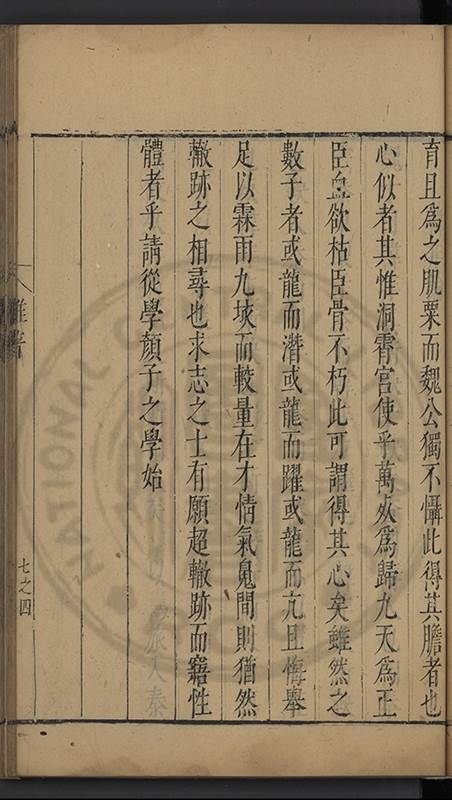 育且為之肌粟而魏公獨不懾此得其膽者也
心似者其惟洞霄宮使乎萬死為歸九天為正
臣血欲枯臣骨不朽此可謂得其心矣雖然之
數子者或龍而潛或龍而躍或龍而亢且悔舉
足以霖雨九垓而較量在才情氣鬼間則猶然
轍跡之相尋也求志之士有願超轍跡而窺性
體者乎請從學顏子之學始
雜著
七之四